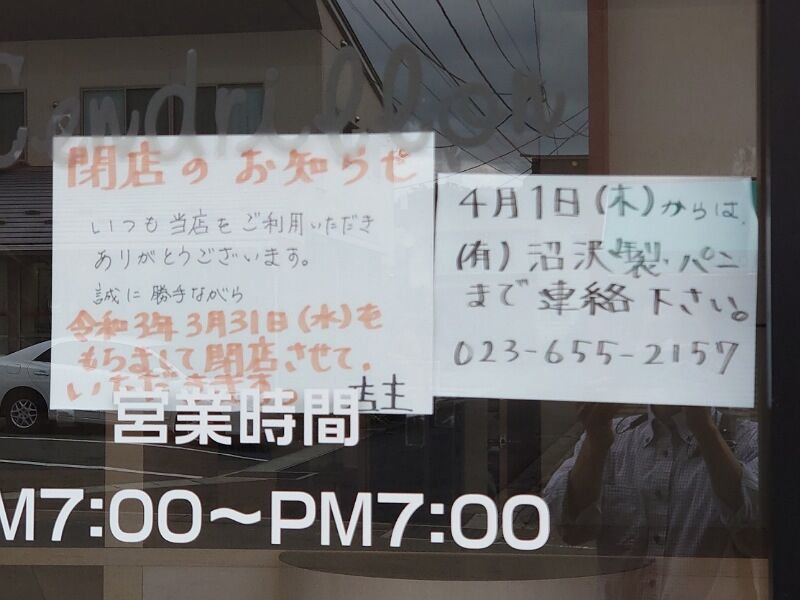 Cendrillon
閉店のお知らせ
いつも当店をご利用いただき
ありがとうございます。
誠に勝手ながら
令和3年3月31日(水)を
もちまして閉店させて
いただきます。
店主
4月1日(木)からは、
(有)沼沢製パン
まで連絡下さい。
023-655-2157
営業時間
M7:00～PM7:00